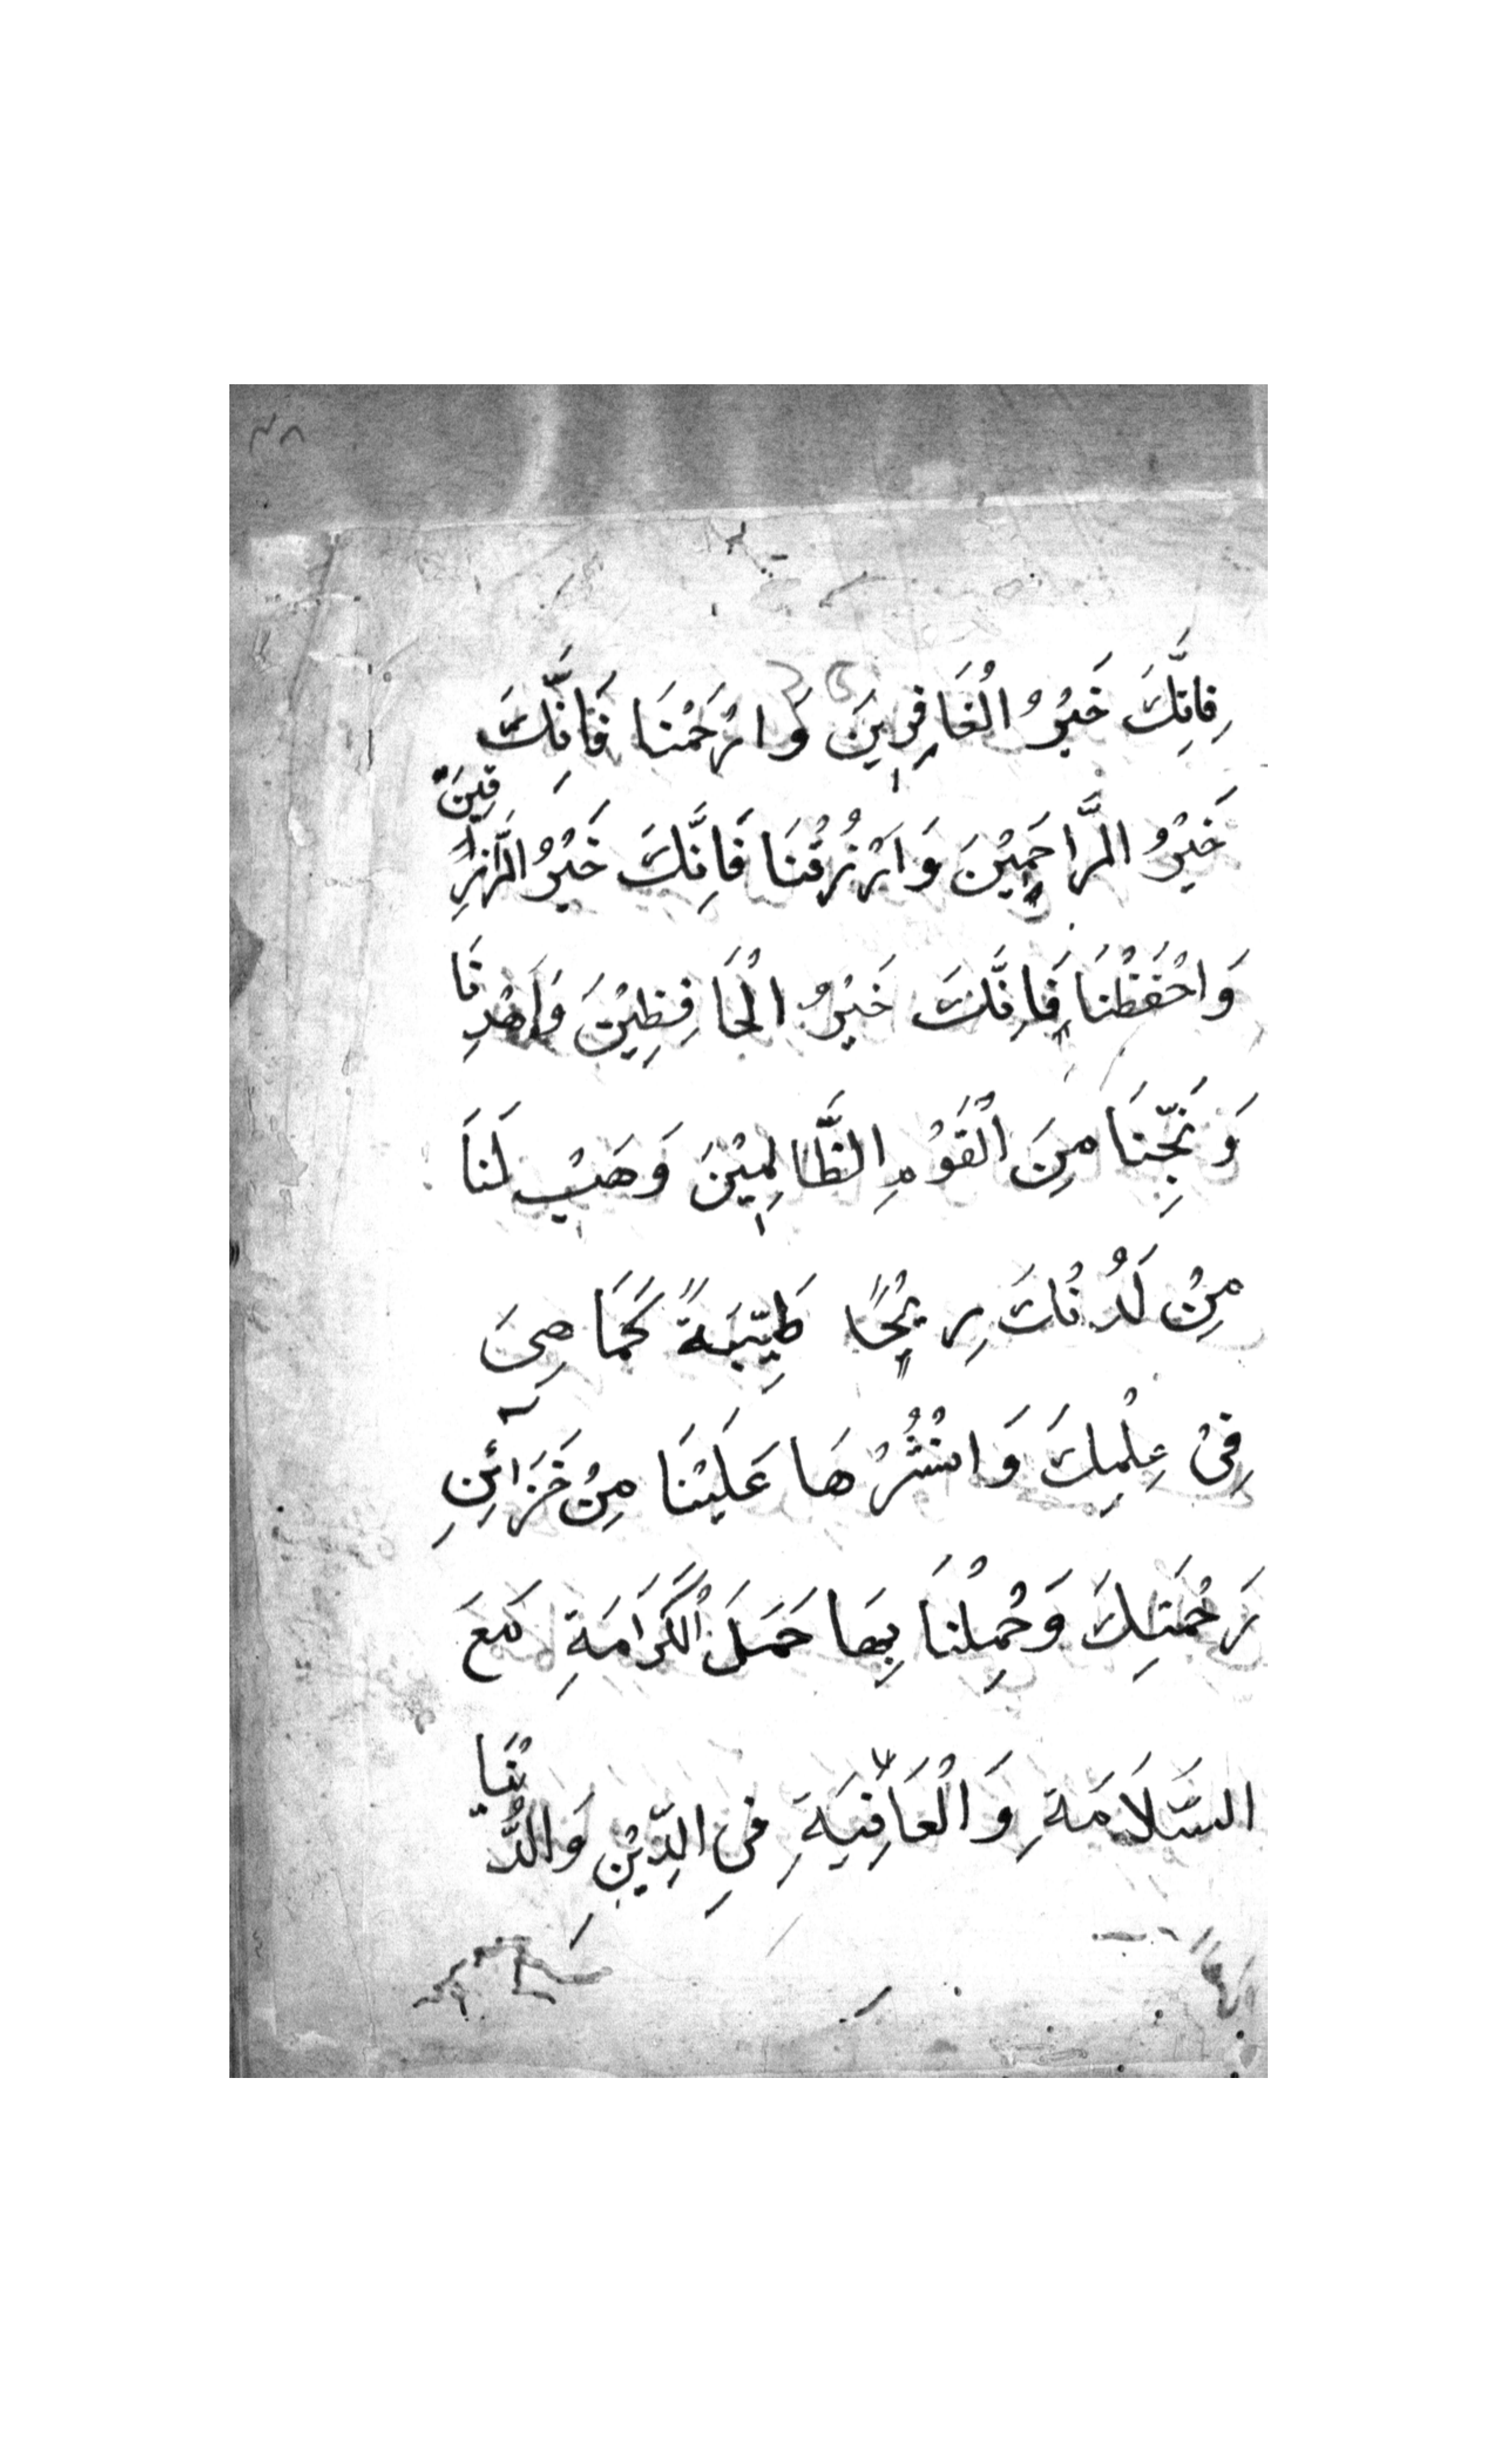 ٣٨
فَاِنَّكَ خَيْرُ الْغَافِرِيْنَ وَارْحَمْنَا فَاِنَّكَ
خَيْرُ الرَّاحِمِيْنَ وَارْزُقْنَا فَاِنَّكَ خَيْرُ الرَّازِقِيْنَ
وَاحْفَظْنَا فَاِنَّكَ خَيْرُ الْحَافِظِيْنَ وَاهْدِنَا
وَنَجِّنَا مِنَ الْقَوْمِ الظَّالِمِيْنَ وَهَبْ لَنَا
مِنْ لَدُنْكَ رِيْحًا طَيِّبَةً كَمَا هِيَ
فِىْ عِلْمِكَ وَانْشُرْهَا عَلَيْنَا مِنْ خَزَائِنِ
رَحْمَتِكَ وَحْمِلْنَا بِهَا حَمَلَ الْكَرَامَةِ مَعَ
السَّلَامَةِ وَالْعَافِيَةِ فِى الدِّيْنِ وَالدُّنْيَا